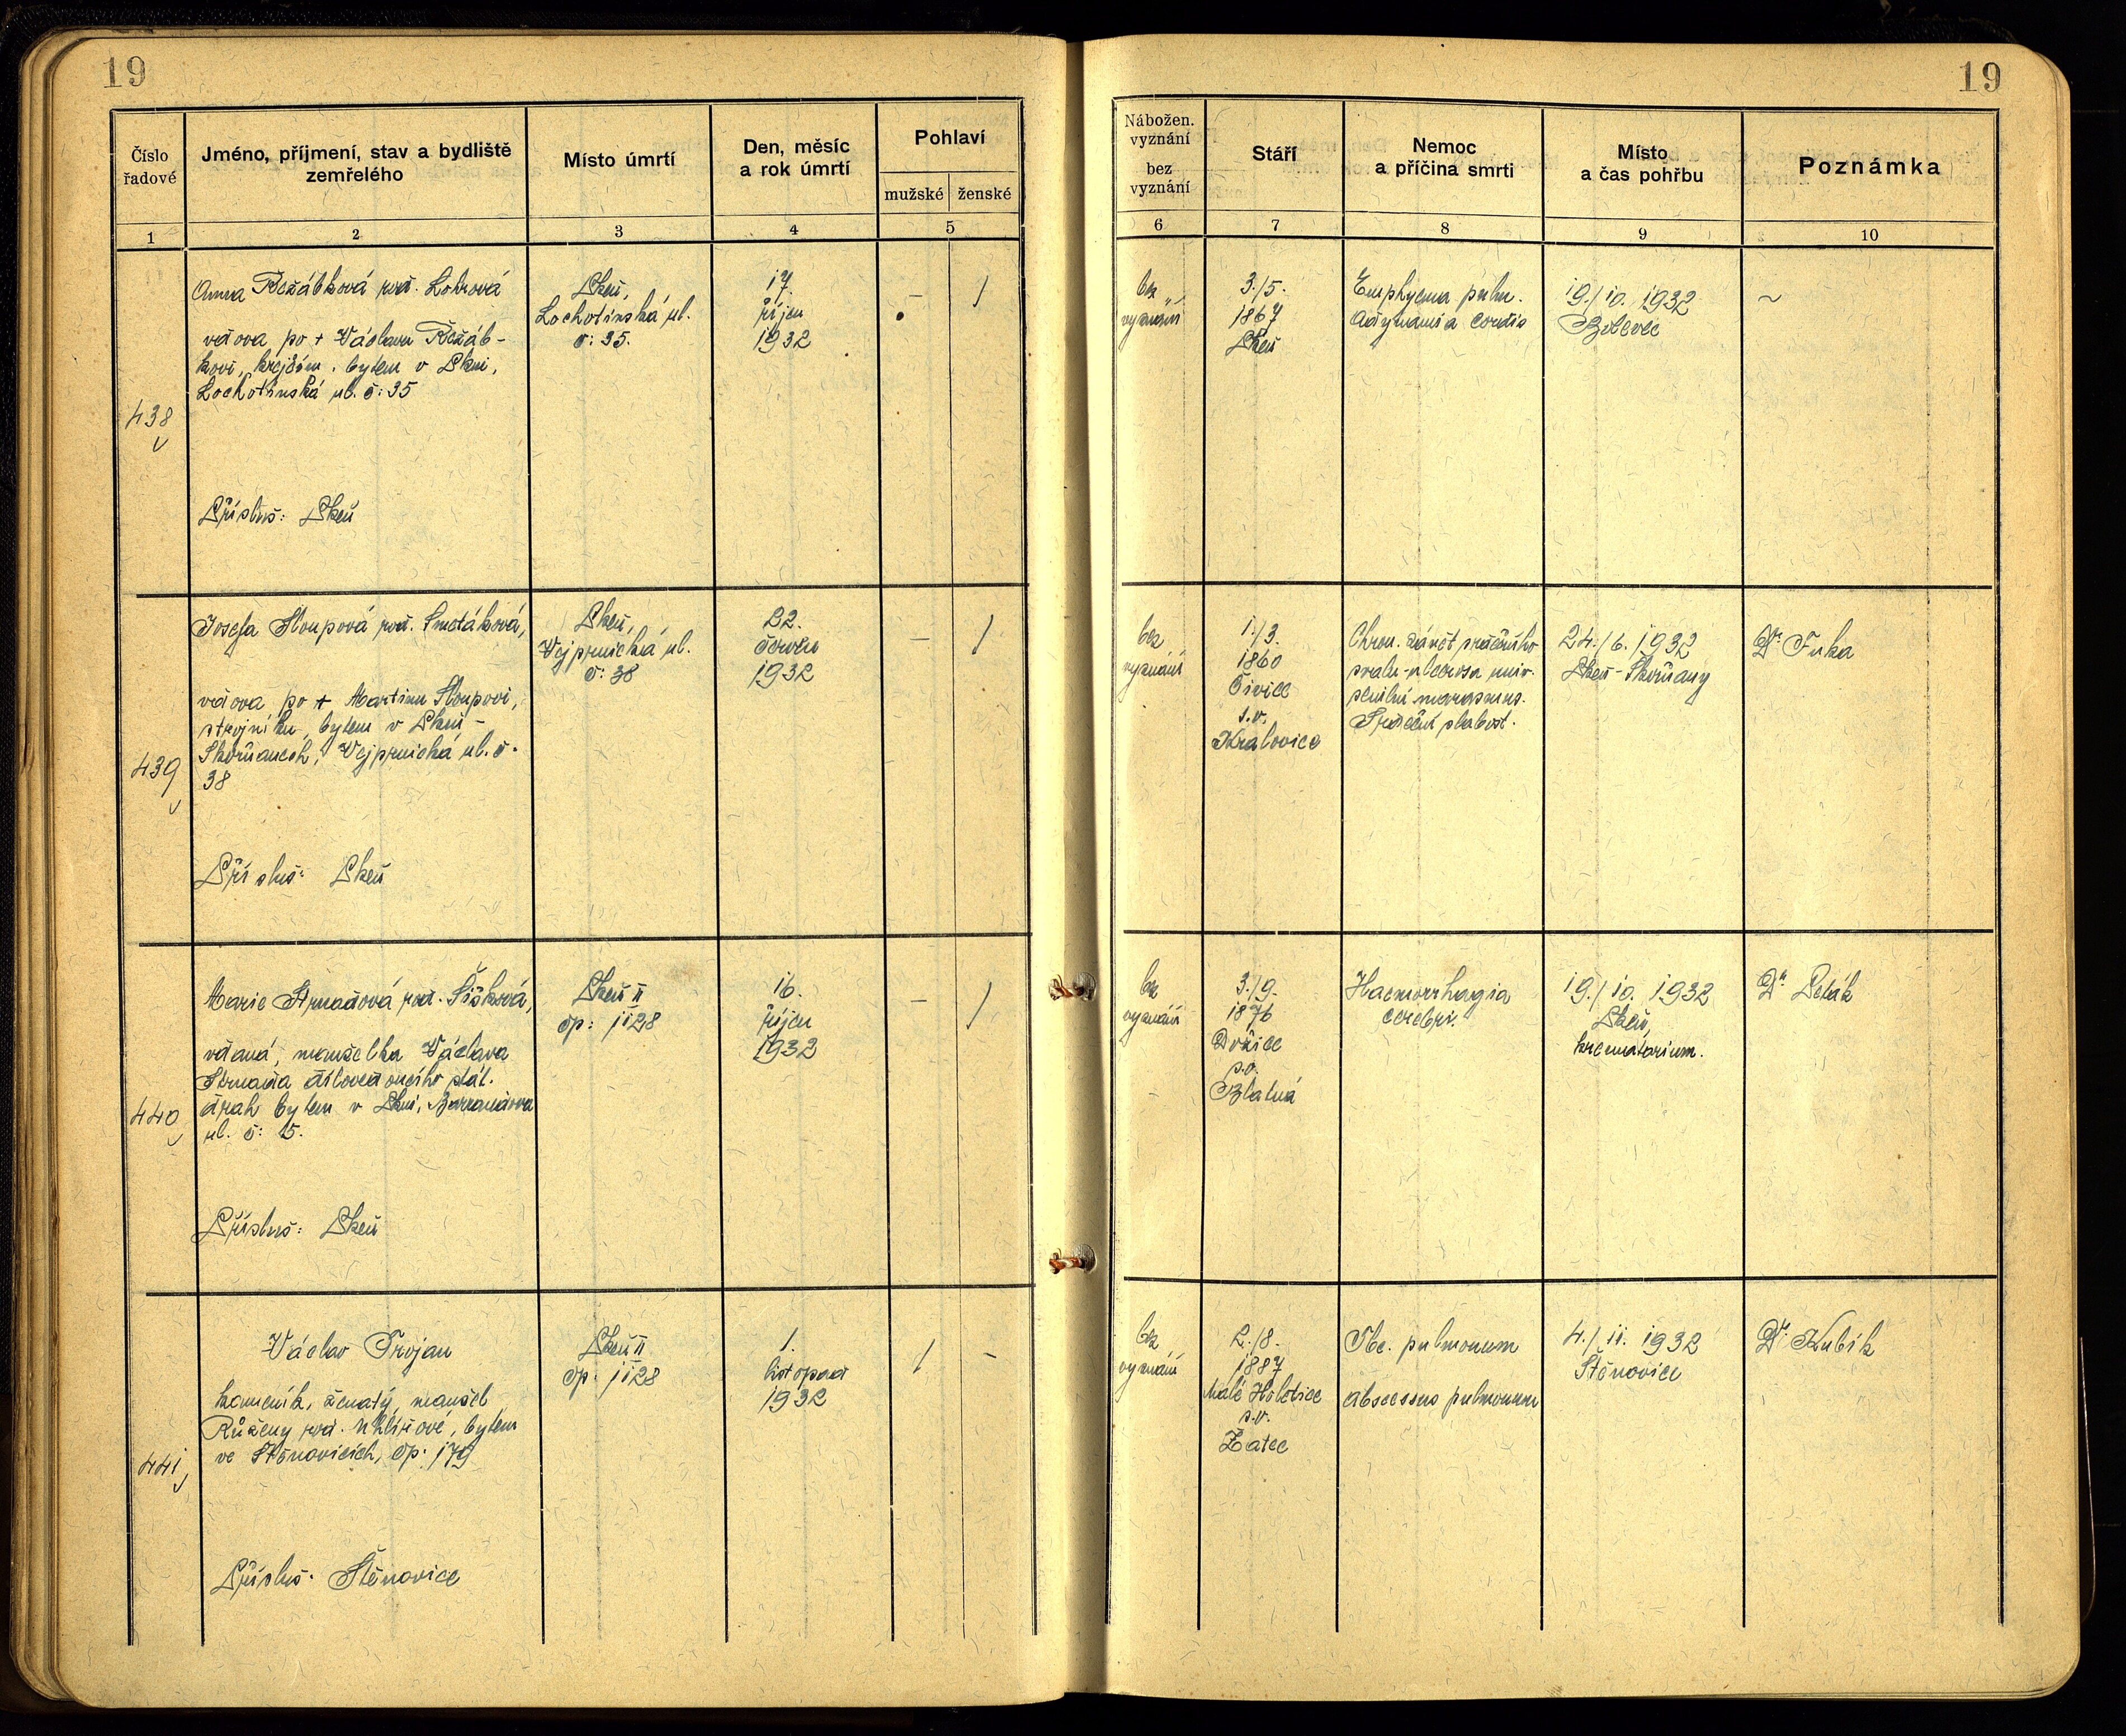 19
19
Číslo
řadové
Jméno, příjmení, stav a bydliště
zemřelého
Místo úmrtí
Den, měsíc
a rok úmrtí
Pohlaví
mužské
ženské
Nábožen.
vyznání
bez
vyznání
Stáří
Nemoc
a příčina smrti
Místo
a čas pohřbu
Poznámka
1
2
3
4
5
6
7
8
9
10
438
Anna Řežábková roz.
vdova po + Václavu Řežáb-
kovi, krejčím. bytem v Plzni,
Lochotínská ul. č: 35
Přísluš: Plzeň
Plzeň,
Lochotínská ul.
č: 35.
17.
říjen
1932
–
/
bez
vyznání
3./5.
1867
Plzeň
Emphysema pulm.
Adynamia cordis
19./10. 1932
Bolevec
~
439
Josefa Sloupová roz. Smetáková,
vdova po + Martinu Sloupovi,
strojníku, bytem v Plzni-
Skvrňanech, Vejprnická ul. č.
38
Přísluš: Plzeň
Plzeň,
Vejprnická ul.
č: 38
22.
červen
1932
–
/
bez
vyznání
1./3.
1860
Čivice
s.o.
Kralovice
Chron. zánět srdečního
svalu-ulcerosa univ.
senilní marasmus.
Srdeční slabost.
24./6. 1932
Plzeň-Skvrňany
Dr Fuka
440
Marie Strnadová roz. Šišková,
vdaná, manželka Václava
Strnada dílovedoucího stát.
drah bytem v Plzni, Barrandova
ul. č: 5.
Přísluš: Plzeň
Plzeň II
čp: 1128
16.
říjen
1932
–
/
bez
vyznání
3./9.
1876
s.o.
Blatná
Haemorrhagia
cerebri.
19./10. 1932
Plzeň,
krematorium.
Dr Peták
441
Václav Trojan
kameník, ženatý, manžel
Růženy roz. Uhlířové, bytem
ve Štěnovicích, čp: 179
Přísluš: Štěnovice
Plzeň II
čp: 1128
1.
listopad
1932
/
–
bez
vyznání
2./8.
1887
Malé Holetice
s.o.
Žatec
Tbc. pulmonum
Abscessus pulmonum
4./11. 1932
Štěnovice
Dr. Kubík